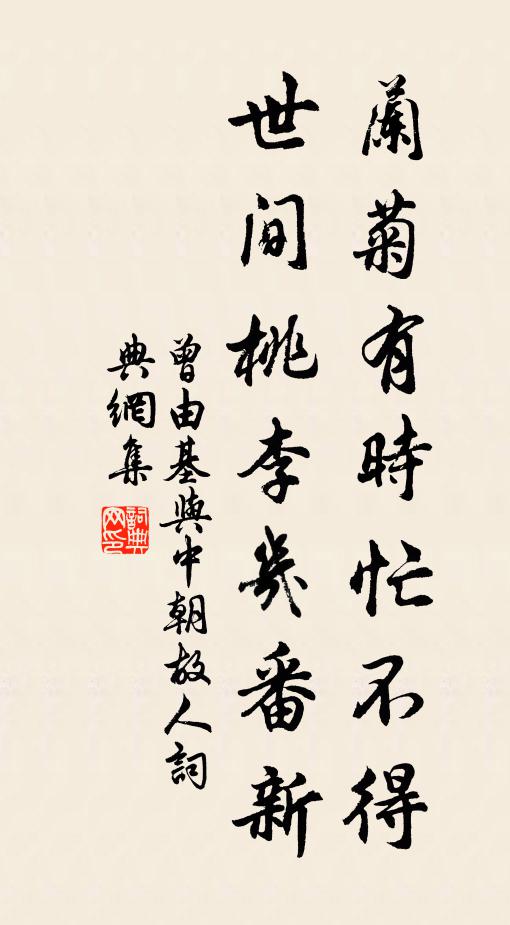 蘭菊有時忙不得
世間桃李幾番新
曾由基與中朝故人詞
典網集
詞典
网印